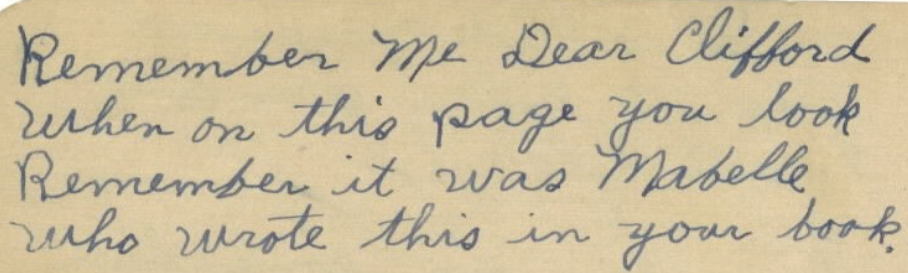 Remember Me Dear Clifford
When on this page you look
Remember it was Mabelle
Who wrote this in your book.